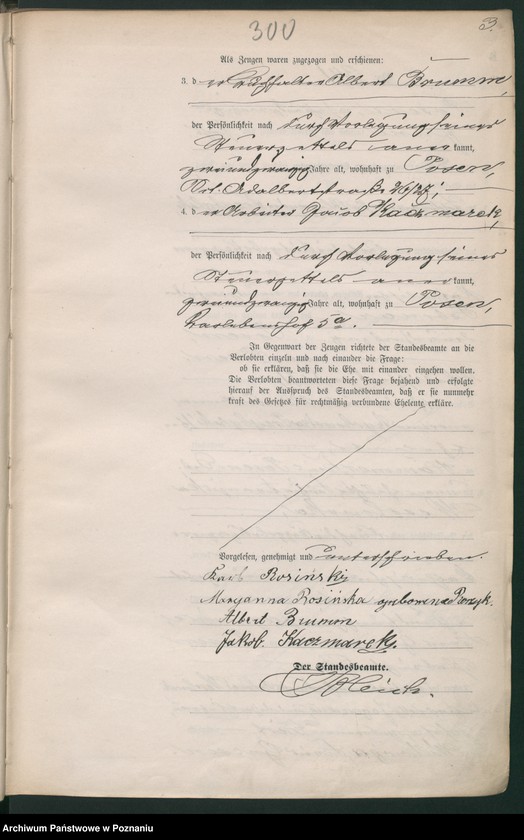 300
3.
Als Zeugen waren zugezogen und erschienen:
3. der Buchhalter Albert Brumm,
der Persönlichkeit nach durch Vorlegung seines
Steuerzettels aner kannt,
Jahre alt, wohnhaft zu Posen,
Skt. Adalbertstraße 26/27;
4. der Arbeiter Jacob Kaczmarek,
der Persönlichkeit nach durch Vorlegung seines
Steuerzettels aner kannt,
Jahre alt, wohnhaft zu Posen,
5a.
In Gegenwart der Zeugen richtete der Standesbeamte an die
Verlobten einzeln und nach einander die Frage:
ob sie erklären, daß sie die Ehe mit einander eingehen wollen.
Die Verlobten beantworteten diese Frage bejahend und erfolgte
hierauf der Ausspruch des Standesbeamten, daß er sie nunmehr
kraft des Gesetzes für rechtmäßig verbundene Eheleute erkläre.
Vorgelesen, genehmigt und unterschrieben.
Rosinski
Maryanna Rosińska geborena
Albert Brumm
Jakob Kaczmarek.
Der Standesbeamte.
Archiwum Państwowe w Poznaniu